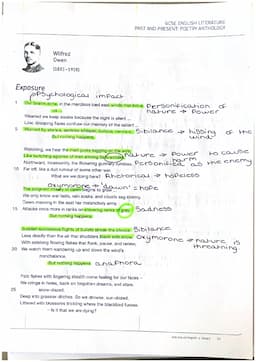 GCSE ENGLISH LITERATURE
PAST AND PRESENT: POETRY ANTHOLOGY
Wilfred
Owen
(1893–1918)
Exposure
Psychological impact
Our brains ache, in the merciless iced east winds that knive
us ...
Personification of
nature → Power
Wearied we keep awake because the night is silent ...
Low, drooping flares confuse our memory of the salient ...
Worried by silence, sentries whisper, curious, nervous,
Sibilance → hissing of the
wind
But nothing happens.
Watching, we hear the mad gusts tugging on the wire,
Like twitching agonies of men among its brambles.
nature → Power to cause
harm
Northward, incessantly, the flickering gunnery rumbles,
Personified as the enemy
10
Far off, like a dull rumour of some other war.
What are we doing here?
Rhetorical → hopeless
Oxymoron → 'dawn' = hope
The poignant misery of dawn begins to grow ...
We only know war lasts, rain soaks, and clouds sag stormy.
Dawn massing in the east her melancholy army
15
Attacks once more in ranks on shivering ranks of grey,
Sadness
But nothing happens.
Sudden successive flights of bullets streak the silence.
Sibilance
Less deadly than the air that shudders black with snow,
Oxymoron → nature is
threatning
With sidelong flowing flakes that flock, pause, and renew;
20
We watch them wandering up and down the wind's
nonchalance,
But nothing happens.
anaphora
Pale flakes with fingering stealth come feeling for our faces –
We cringe in holes, back on forgotten dreams, and stare,
snow-dazed,
25
Deep into grassier ditches. So we drowse, sun-dozed,
Littered with blossoms trickling where the blackbird fusses.
– Is it that we are dying?